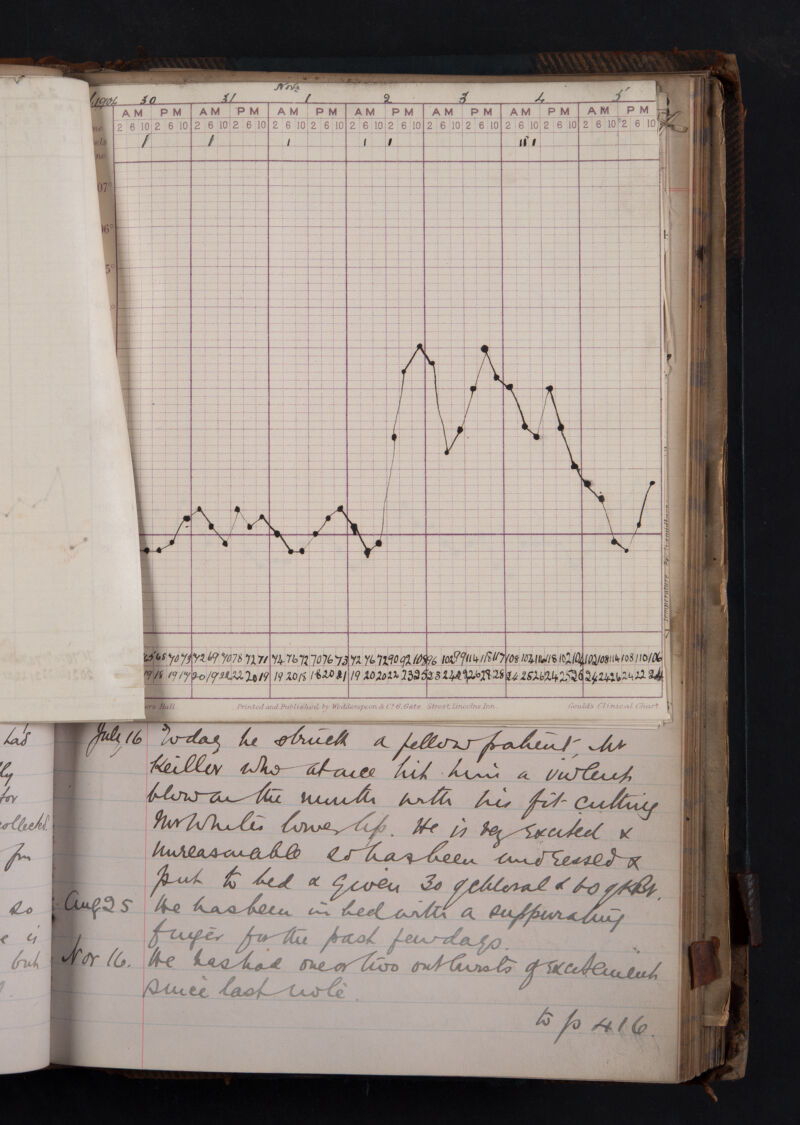 Novr
1906 30 31 1 2 3 4 5
AM PM AM PM AM PM AM PM AM PM AM PM AM PM
2 6 10 2 6 10 2 6 10 2 6 10 2 6 10 2 6 10 2 6 10 2 6 10 2 6 10 2 6 10 2 6 10 2 6 10 2 6 10 2 6 10
07°
06°
5°
19 18 19 19 20 19 22 22 20 19 19 20 18 18 20 21 19 20 20 22 23 25 23 24
Printed and Published by Wodderspoon & Co. 6, Gate Street, Lincolns Inn.
Goulds Clinical Chart
July 16 Today he struck a fellow patient, Mr
Keiller who at once hit him a violent
blow on the mouth with his fist cutting
Mr White's lower lip. He is very excited &
unreasonable so has been undressed &
put to bed & given 30 gr chloral & 60 gr
Aug 25 He has been in bed with a suppurating
finger for the past few days.
Nov 16. He has had one or two outbursts of excitement
since last note.
to p 416.
had
ly
for
collected
for
so
e is
but